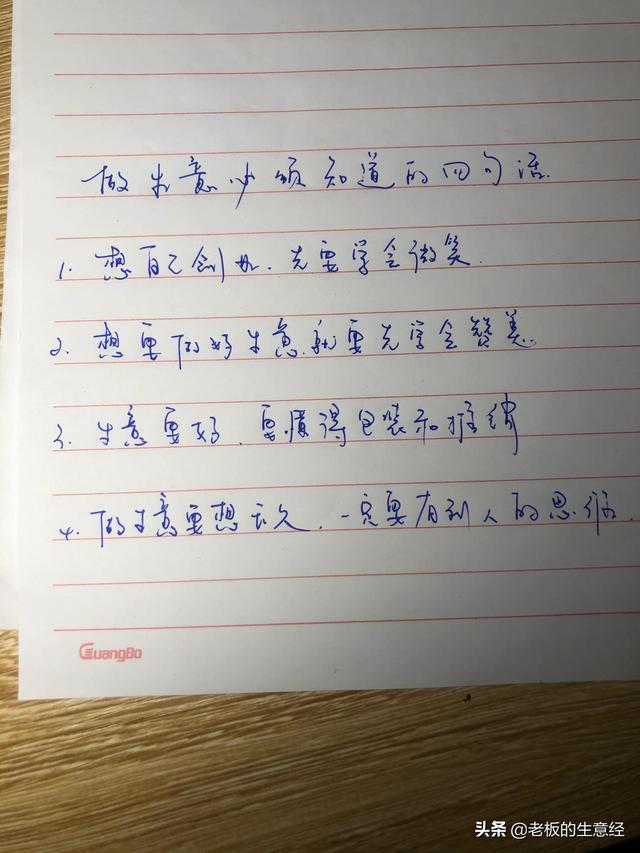 做生意必须知道的四句话.
1. 想自己创业.先要学会微笑.
2. 想要做好生意.就要先学会赞美.
3. 生意要好.要懂得包装和推销
4. 做生意要想长久.一定要有利人的思维.
GuangBo
头条 @老板的生意经